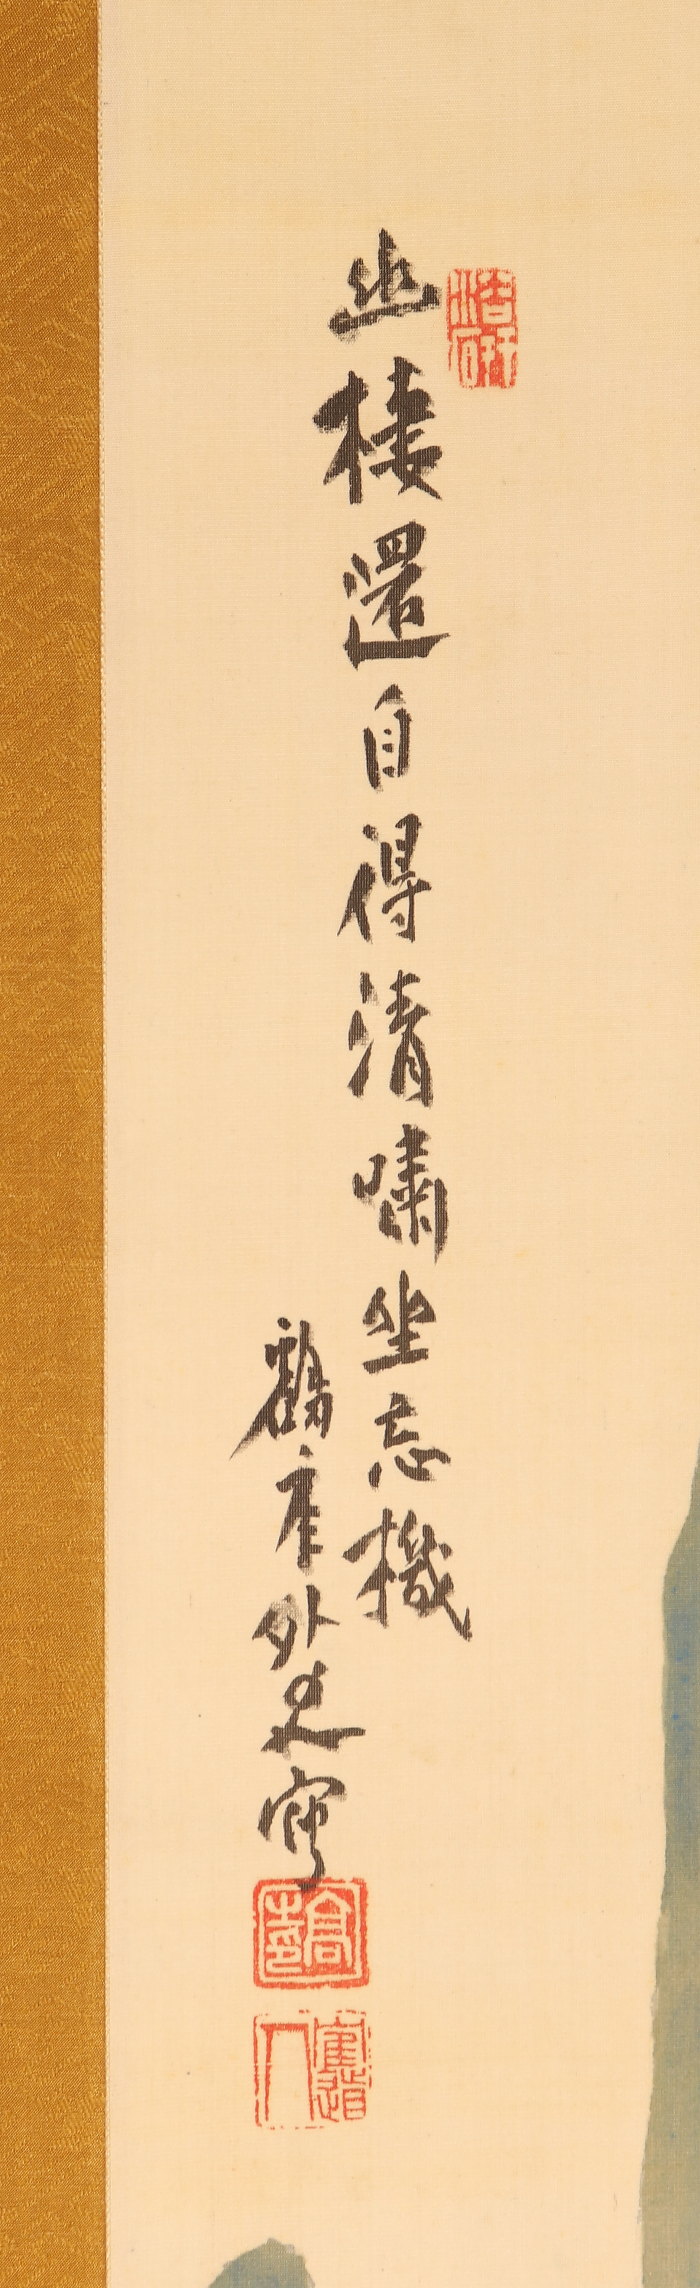 幽棲還自得清嘯坐忘機
外史寫